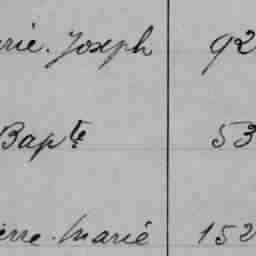 rie. Joseph 92
Bapte 53
erre. Marie 152